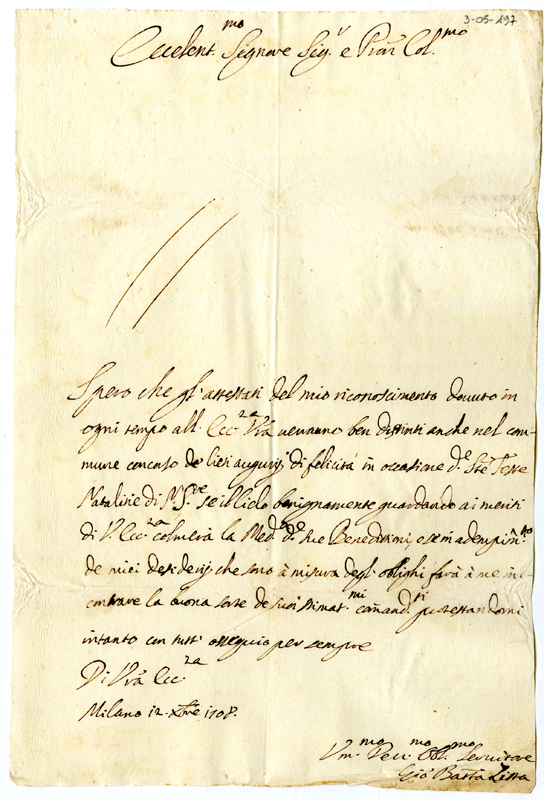 3-05-197
Eccelent.mo Signore Sig.r e Pron Col.mo
Spero che gl'attestati del mio riconoscimento douuto in
ogni tempo all. Ecc.za Vra uerranno ben distinti anche nel com-
mune concorso de lieti augurij di felicità in occasione d.e Ste Feste
Natalitie di N. S.re se il Cielo benignamente guardando ai meriti
di V. Ecc.za colmerà la Med.a de sue Benedittioni, e se in adempim.to
de miei desiderij che sono à misura degl'oblighi farà à me in-
contrare la buona sorte de suoi stimat.mi comand.ti protestandomi
intanto con tutt' ossequio per sempre
Di Vra Ecc.za
Milano 12. Xbre 1708.
Vm.mo Deu.mo Obl.mo Seruitore
Gio Batta